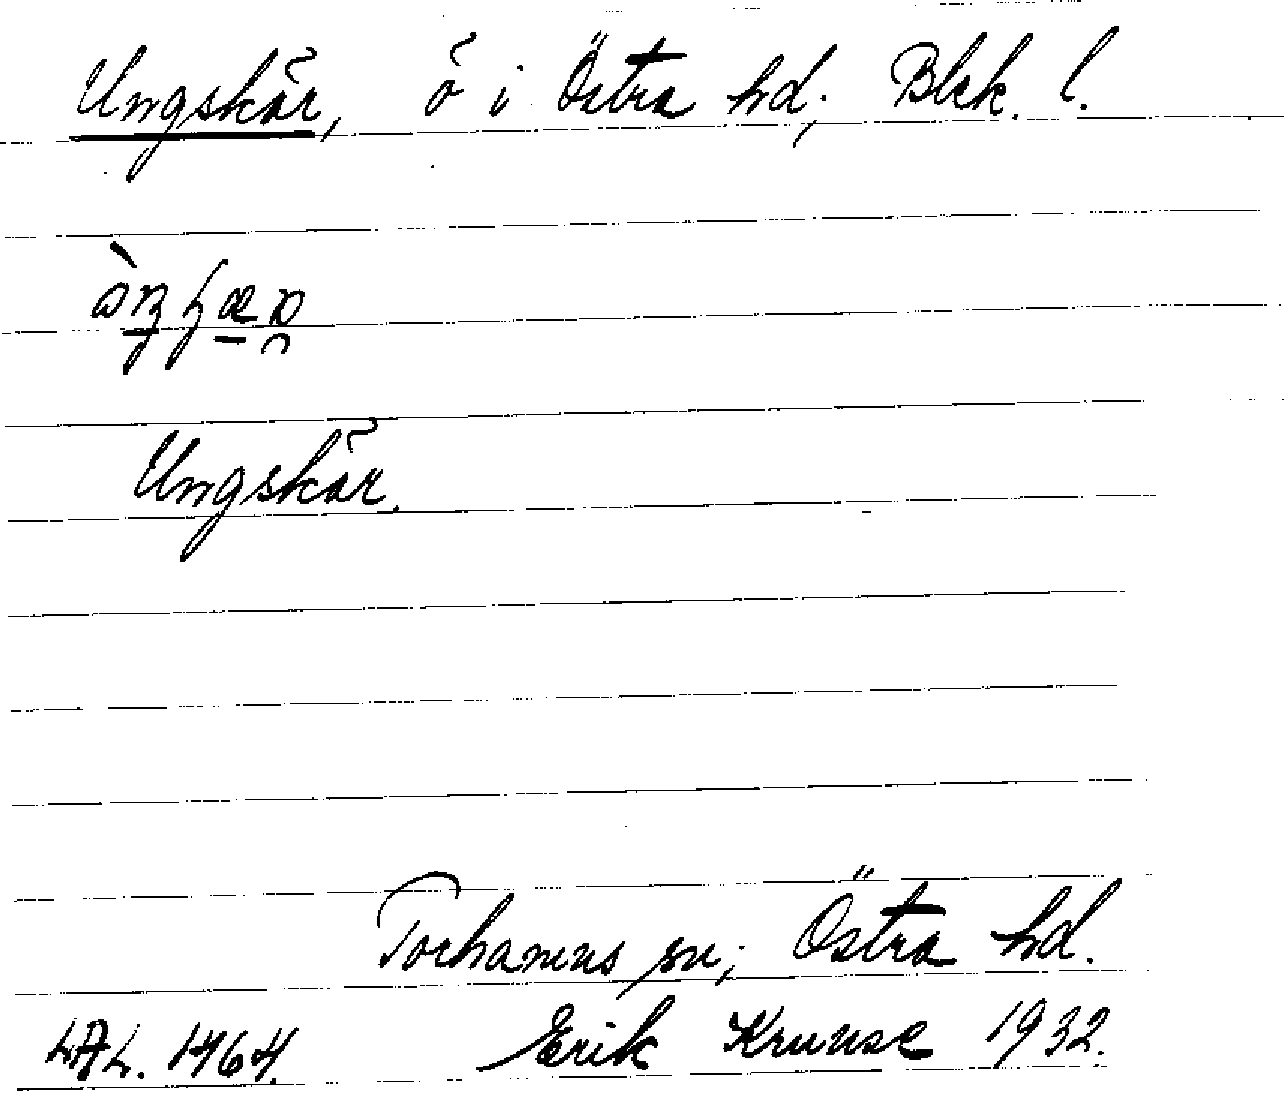 Ungskär, ö i Östra hd; Blek. l.
Ungskär.
Torhamns sn; Östra hd.
LAL. 1464. Erik Kruuse 1932.